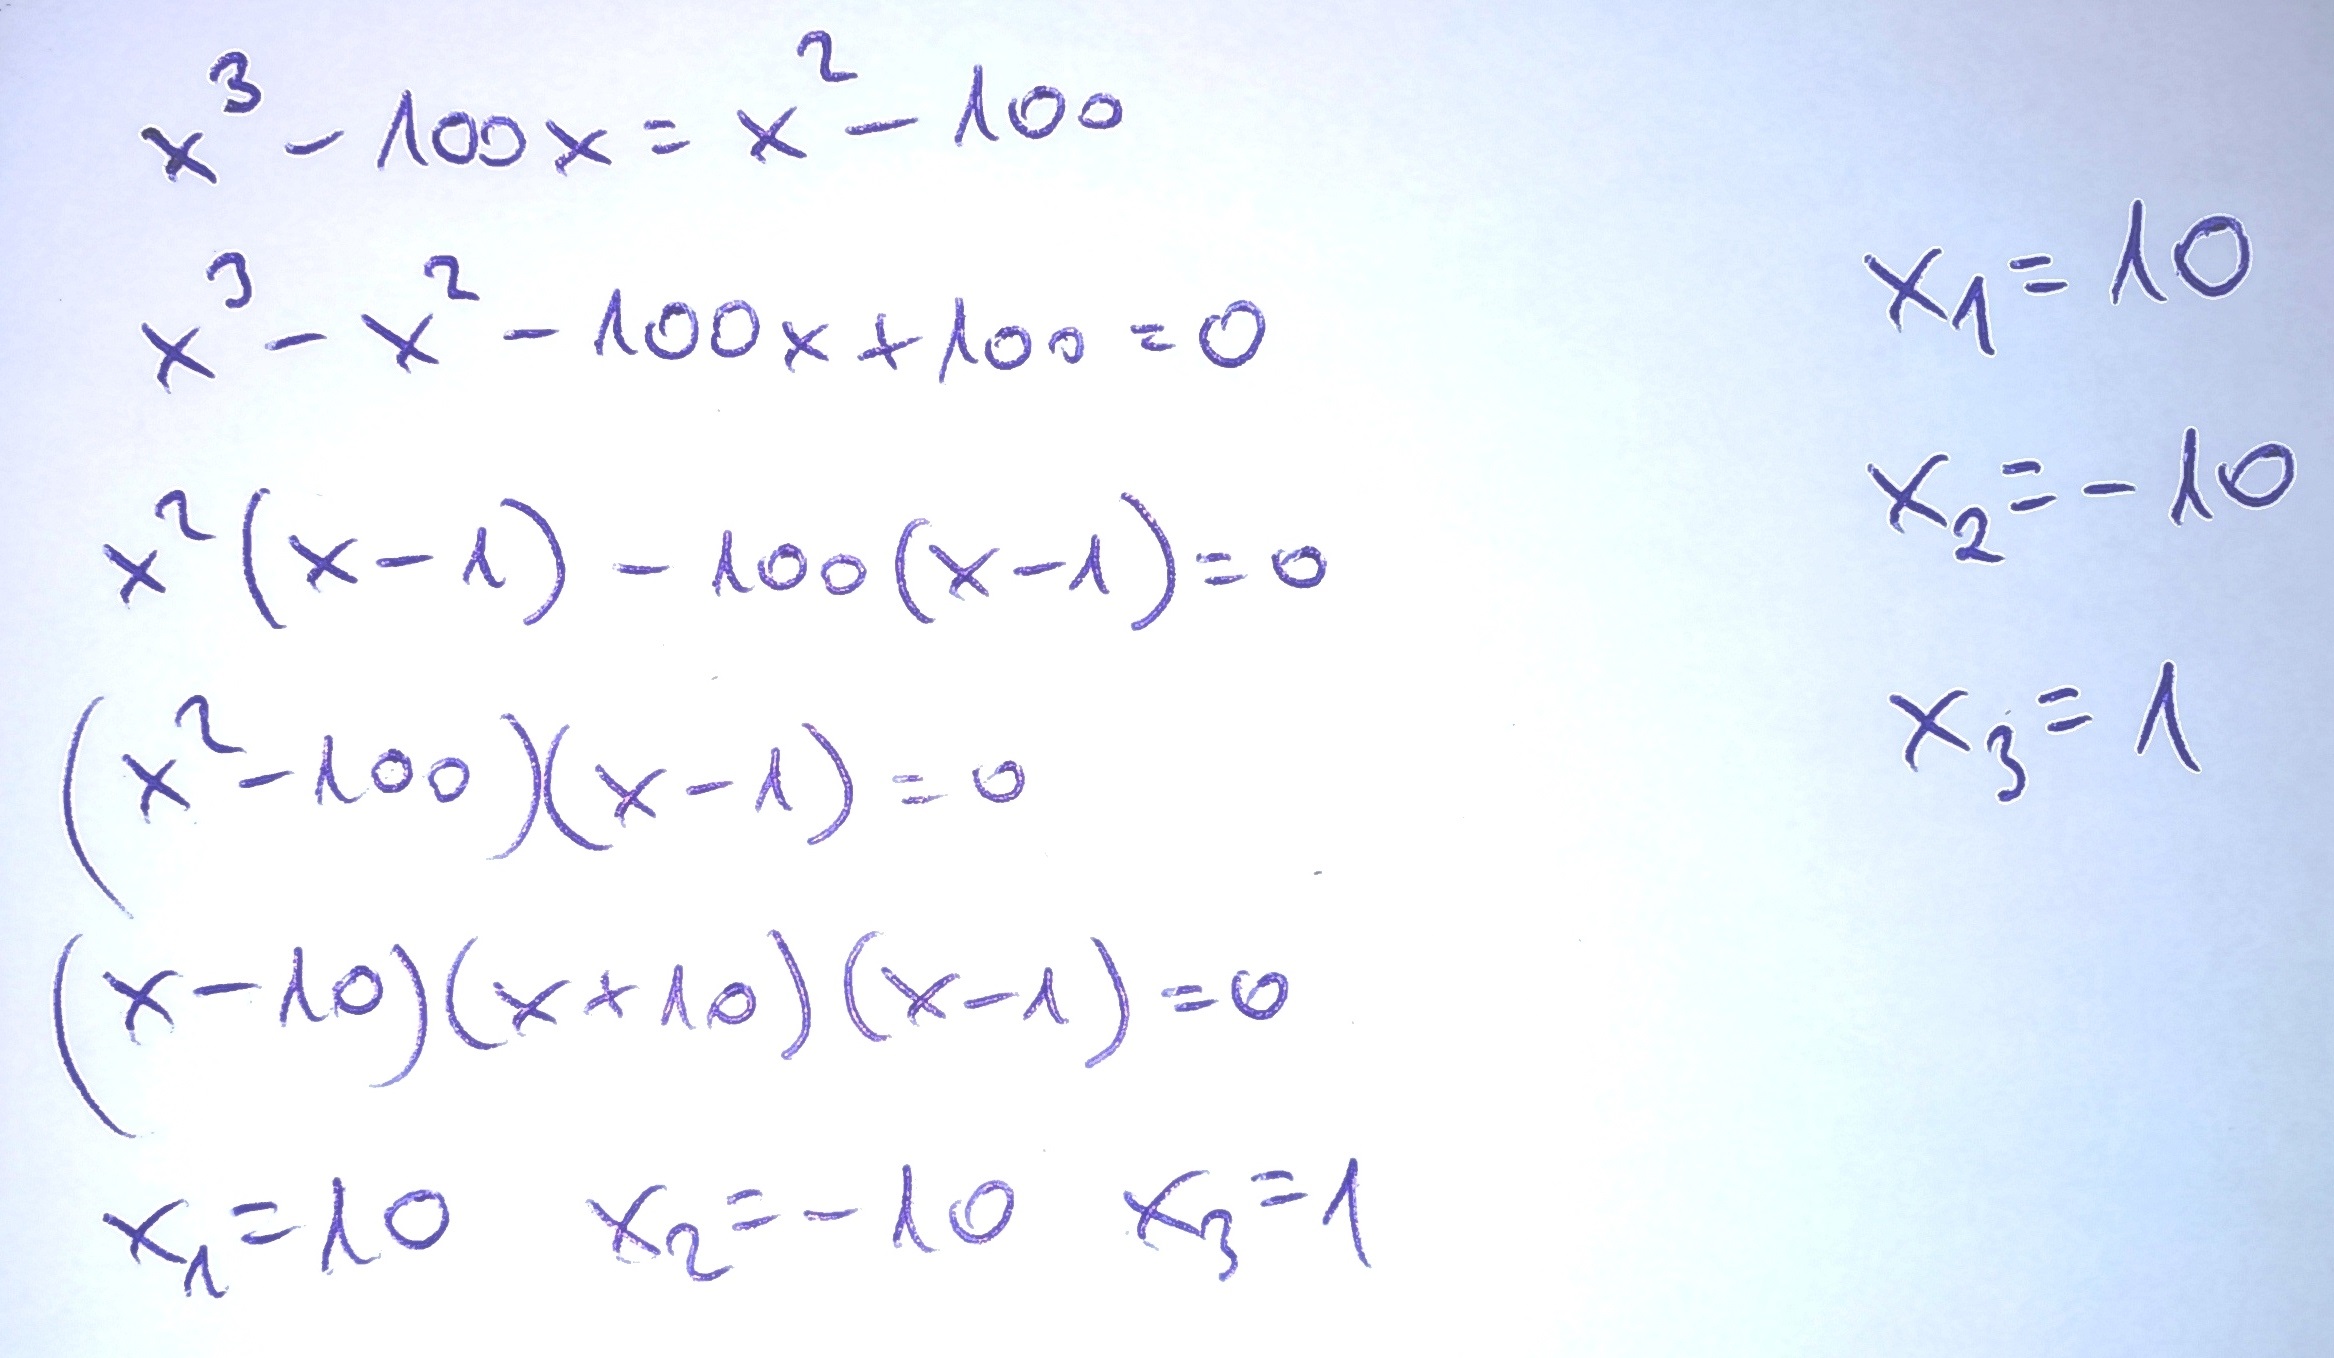 x³ - 100x = x² - 100
x³ - x² - 100x + 100 = 0
x²(x - 1) - 100(x - 1) = 0
(x² - 100)(x - 1) = 0
(x - 10)(x + 10)(x - 1) = 0
x₁ = 10 x₂ = -10 x₃ = 1
x₁ = 10
x₂ = -10
x₃ = 1